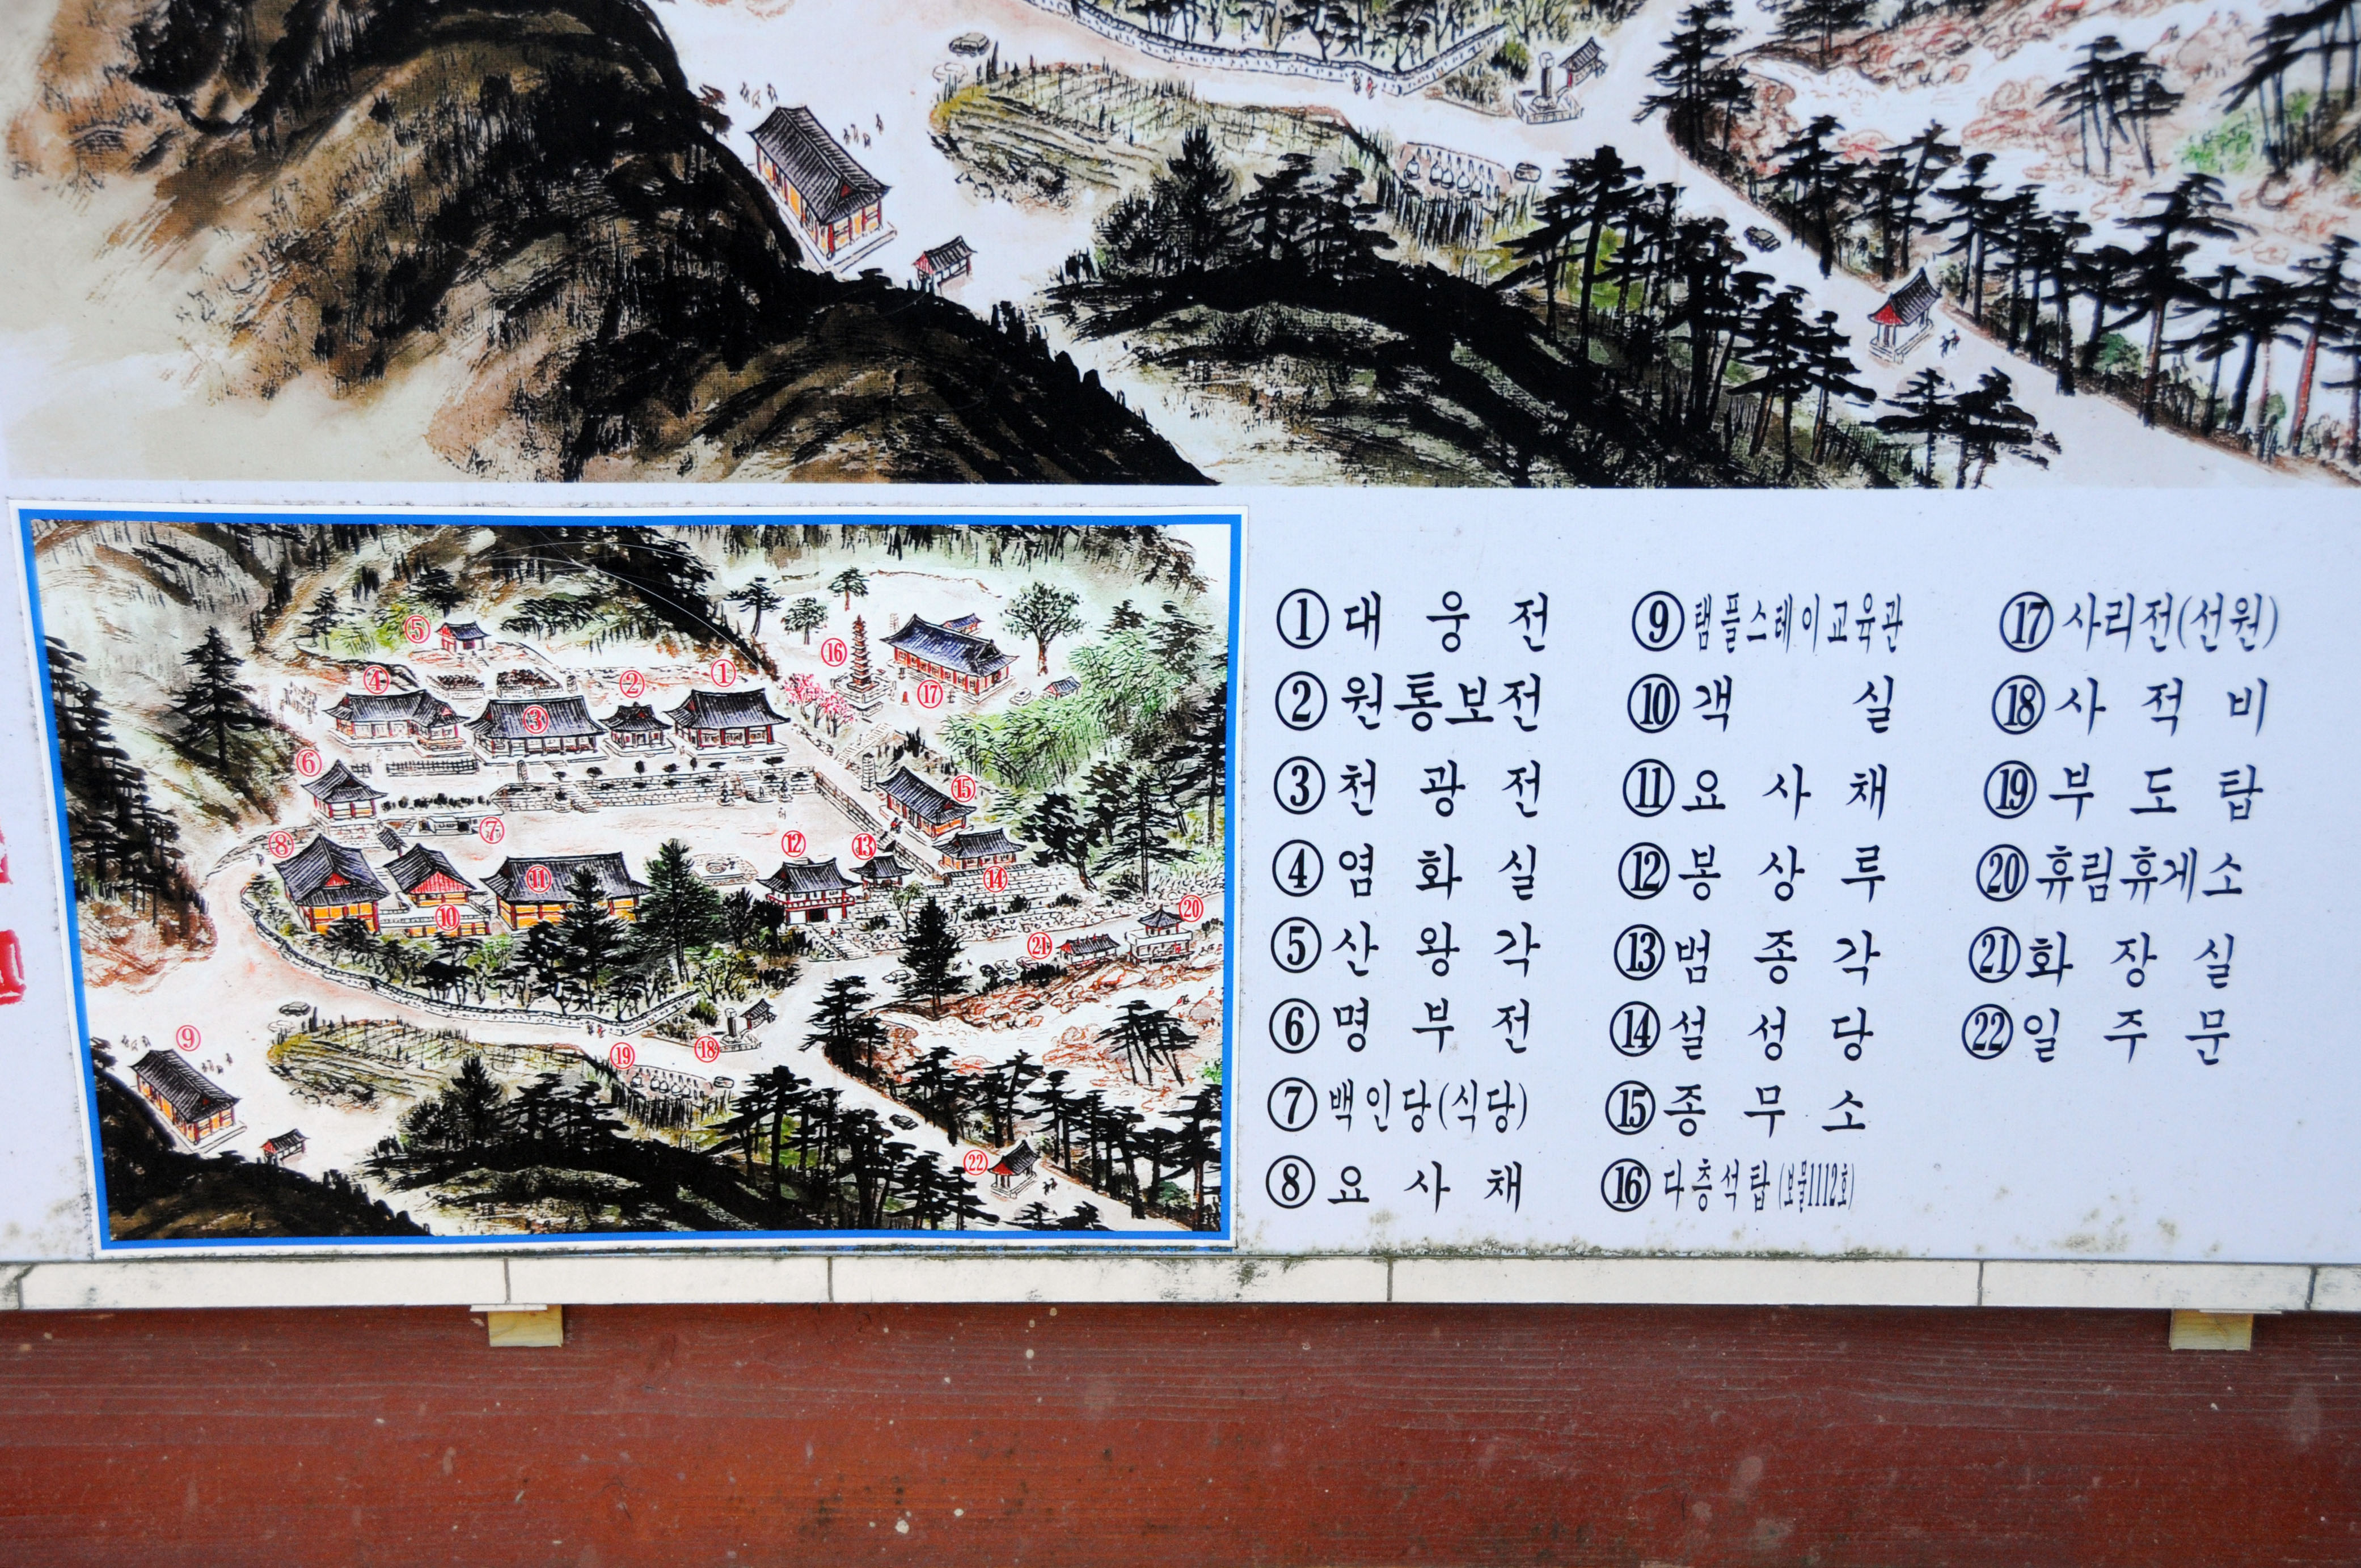 ① 대웅전
② 원통보전
③ 천광전
④ 염화실
⑤ 산왕각
⑥ 명부전
⑦ 백인당(식당)
⑧ 요사채
⑨ 탬플스테이교육관
⑩ 객실
⑪ 요사채
⑫ 봉상루
⑬ 범종각
⑭ 설성당
⑮ 종무소
⑯ 다층석탑(보물1112호)
⑰ 사리전(선원)
⑱ 사적비
⑲ 부도탑
⑳ 휴림휴게소
㉑ 화장실
㉒ 일주문
⑤
⑯
④
②
①
③
⑰
⑥
⑮
⑦
⑧
⑫
⑬
⑪
⑭
⑩
⑳
㉑
⑨
⑲
⑱
㉒